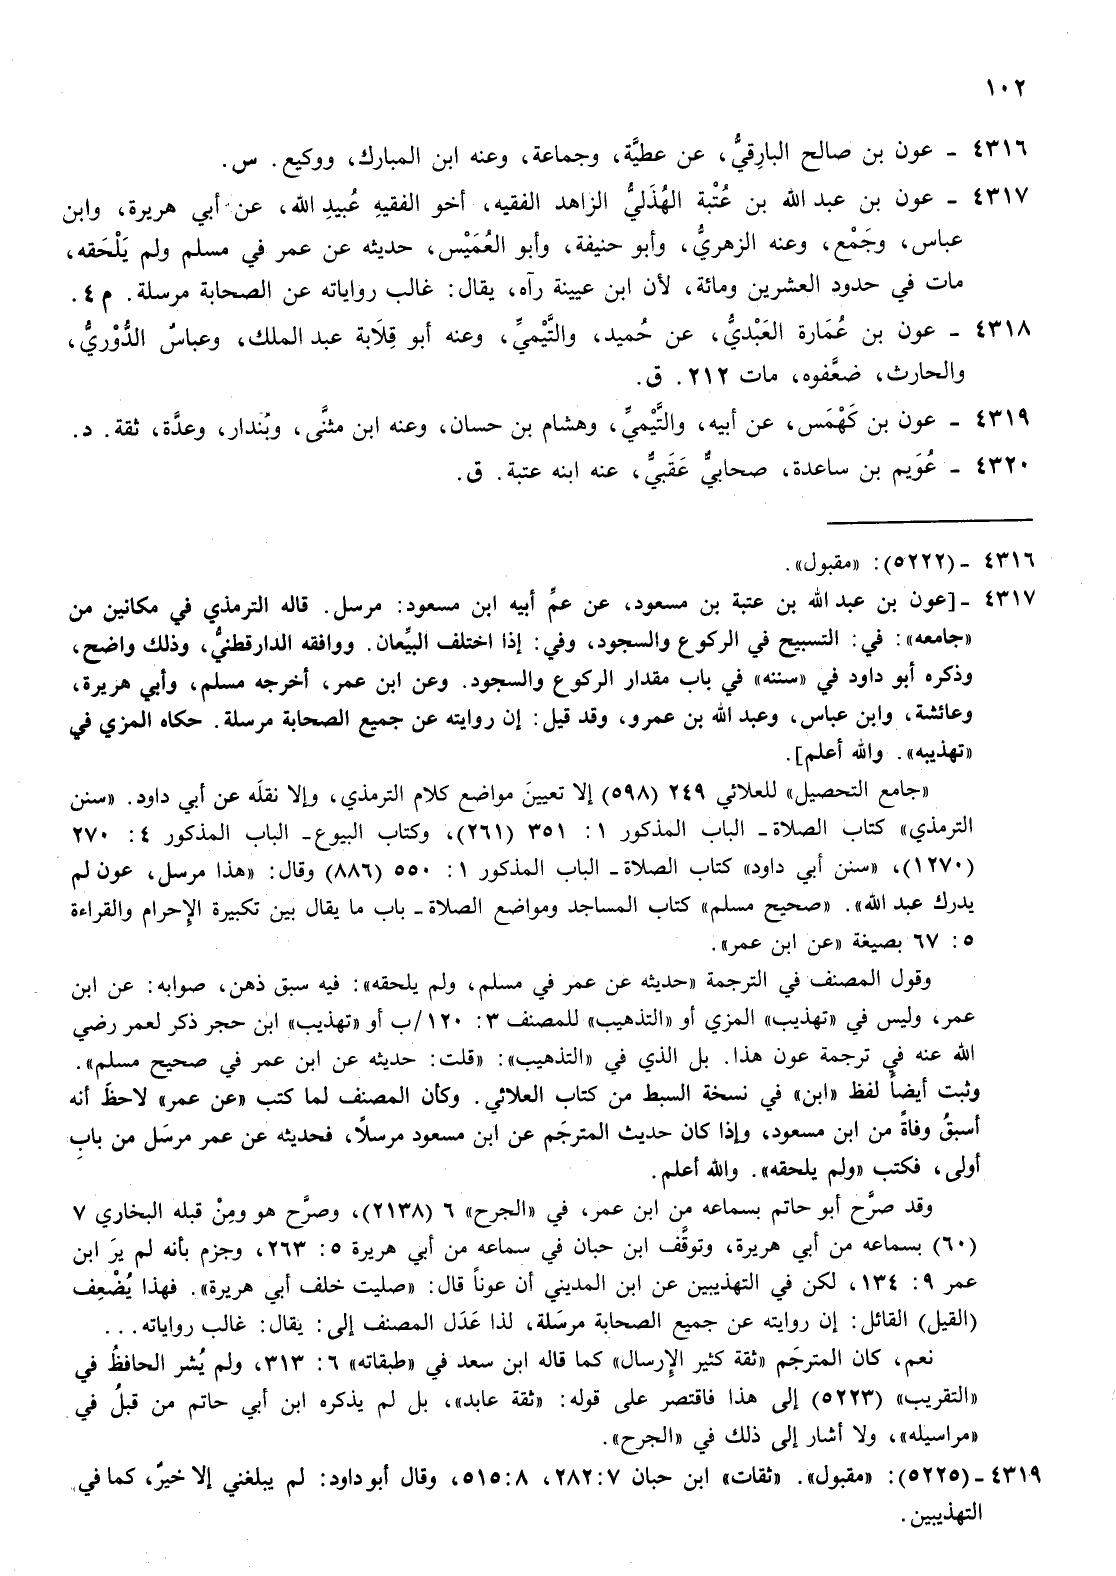 ١٠٢
٤٣١٦ ـ عون بن صالح البارِقيُّ، عن عطيَّة، وجماعة، وعنه ابن المبارك، ووكيع. س.
٤٣١٧ ـ عون بن عبد الله بن عُتْبة الهُذَليُّ الزاهد الفقيه، أخو الفقيهِ عُبيدِ الله، عن أبي هريرة، وابن
عباس، وجَمْع، وعنه الزهريُّ، وأبو حنيفة، وأبو العُمَيْس، حديثه عن عمر في مسلم ولم يَلْحَقه،
مات في حدود العشرين ومائة، لأن ابن عيينة رآه، يقال: غالب رواياته عن الصحابة مرسلة. م ٤.
٤٣١٨ ـ عون بن عُمَارة العَبْديُّ، عن حُميد، والتَّيْميِّ، وعنه أبو قِلَابة عبد الملك، وعباسٌ الدُّوْريُّ،
والحارث، ضعَّفوه، مات ٢١٢. ق.
٤٣١٩ ـ عون بن كَهْمَس، عن أبيه، والتَّيْميِّ، وهشام بن حسان، وعنه ابن مثنَّى، وبُندار، وعدَّة، ثقة. د.
٤٣٢٠ ـ عُوَيم بن ساعدة، صحابيٌّ عَقَبيٌّ، عنه ابنه عتبة. ق.
٤٣١٦ ـ (٥٢٢٢): «مقبول».
٤٣١٧ ـ [عون بن عبد الله بن عتبة بن مسعود، عن عمِّ أبيه ابن مسعود: مرسل. قاله الترمذي في مكانين من
«جامعه»: في: التسبيح في الركوع والسجود، وفي: إذا اختلف البيِّعان. ووافقه الدارقطنيُّ، وذلك واضح،
وذكره أبو داود في «سننه» في باب مقدار الركوع والسجود. وعن ابن عمر، أخرجه مسلم، وأبي هريرة،
وعائشة، وابن عباس، وعبد الله بن عمرو، وقد قيل: إن روايته عن جميع الصحابة مرسلة. حكاه المزي في
«تهذيبه». والله أعلم].
«جامع التحصيل» للعلائي ٢٤٩ (٥٩٨) إلا تعيينَ مواضع كلام الترمذي، وإلا نقلَه عن أبي داود. «سنن
الترمذي» كتاب الصلاة ـ الباب المذكور ١: ٣٥١ (٢٦١)، وكتاب البيوع ـ الباب المذكور ٤: ٢٧٠
(١٢٧٠)، «سنن أبي داود» كتاب الصلاة ـ الباب المذكور ١: ٥٥٠ (٨٨٦) وقال: «هذا مرسل، عون لم
يدرك عبد الله». «صحيح مسلم» كتاب المساجد ومواضع الصلاة ـ باب ما يقال بين تكبيرة الإحرام والقراءة
٥: ٦٧ بصيغة «عن ابن عمر».
وقول المصنف في الترجمة «حديثه عن عمر في مسلم، ولم يلحقه»: فيه سبق ذهن، صوابه: عن ابن
عمر، وليس في «تهذيب» المزي أو «التذهيب» للمصنف ٣: ١٢٠/ب أو «تهذيب» ابن حجر ذكر لعمر رضي
الله عنه في ترجمة عون هذا. بل الذي في «التذهيب»: «قلت: حديثه عن ابن عمر في صحيح مسلم».
وثبت أيضاً لفظ «ابن» في نسخة السبط من كتاب العلائي. وكأن المصنف لما كتب «عن عمر» لاحظَ أنه
أسبقُ وفاةً من ابن مسعود، وإذا كان حديث المترجَم عن ابن مسعود مرسلًا، فحديثه عن عمر مرسَل من بابِ
أولى، فكتب «ولم يلحقه». والله أعلم.
وقد صرَّح أبو حاتم بسماعه من ابن عمر، في «الجرح» ٦ (٢١٣٨)، وصرَّح هو ومِنْ قبله البخاري ٧
(٦٠) بسماعه من أبي هريرة، وتوقَّف ابن حبان في سماعه من أبي هريرة ٥: ٢٦٣، وجزم بأنه لم يرَ ابن
عمر ٩: ١٣٤، لكن في التهذيبين عن ابن المديني أن عوناً قال: «صليت خلف أبي هريرة». فهذا يُضْعِف
(القيل) القائل: إن روايته عن جميع الصحابة مرسَلة، لذا عَدَل المصنف إلى: يقال: غالب رواياته...
نعم، كان المترجَم «ثقة كثير الإرسال» كما قاله ابن سعد في «طبقاته» ٦: ٣١٣، ولم يُشر الحافظُ في
«التقريب» (٥٢٢٣) إلى هذا فاقتصر على قوله: «ثقة عابد»، بل لم يذكره ابن أبي حاتم من قبلُ في
«مراسيله»، ولا أشار إلى ذلك في «الجرح».
٤٣١٩ ـ (٥٢٢٥): «مقبول». «ثقات» ابن حبان ٧: ٢٨٢، ٨: ٥١٥، وقال أبو داود: لم يبلغني إلا خيرٌ، كما في
التهذيبين.